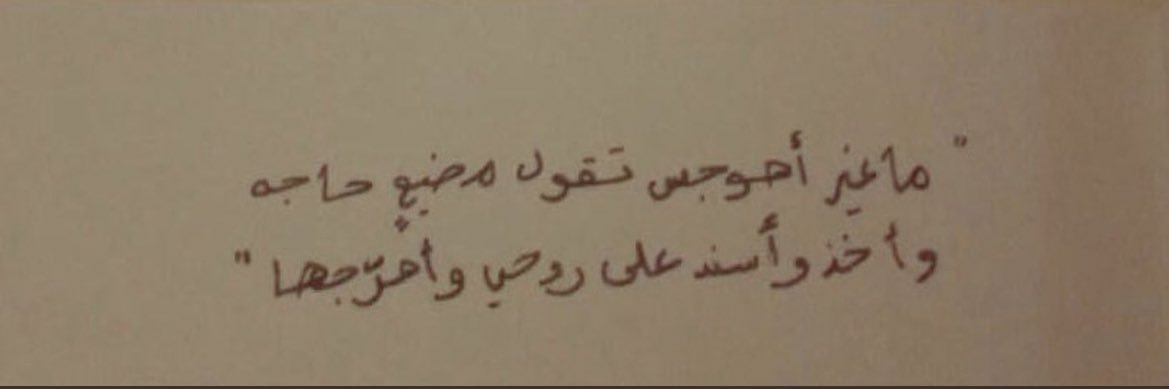 " ما غير أهوجس تقول مضيعٍ حاجه
وأخذ وأسند على روحي وأهرّجها "